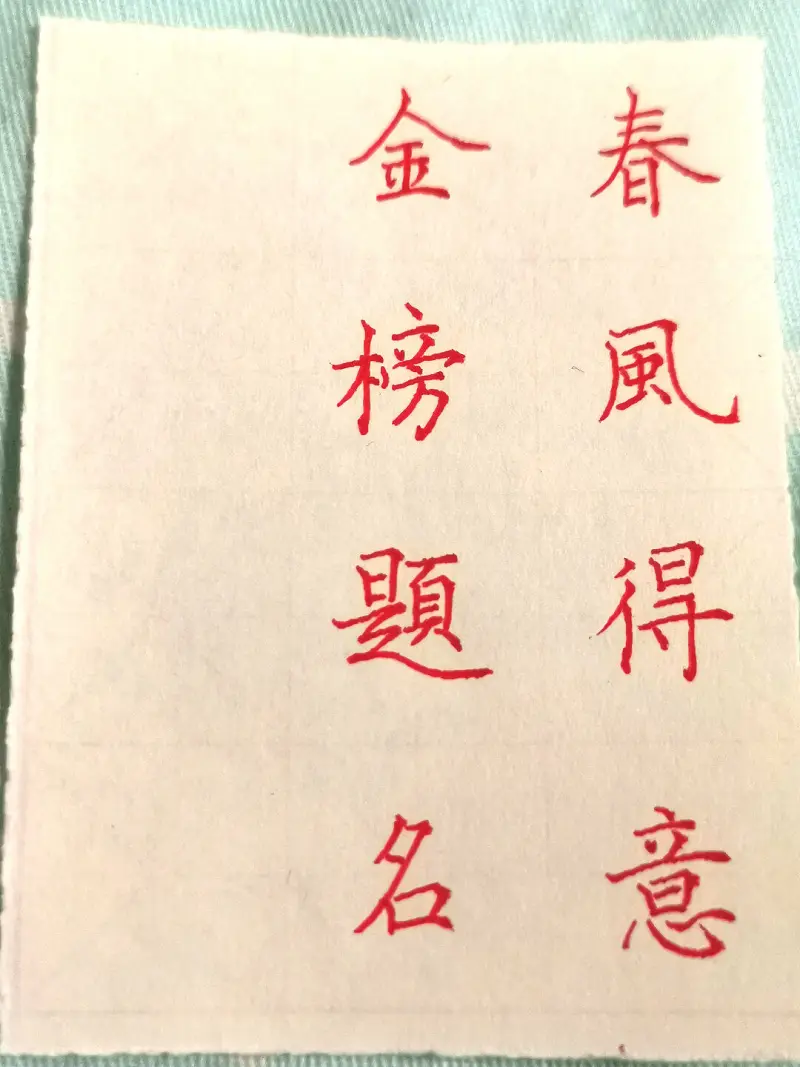 春風得意
金榜題名